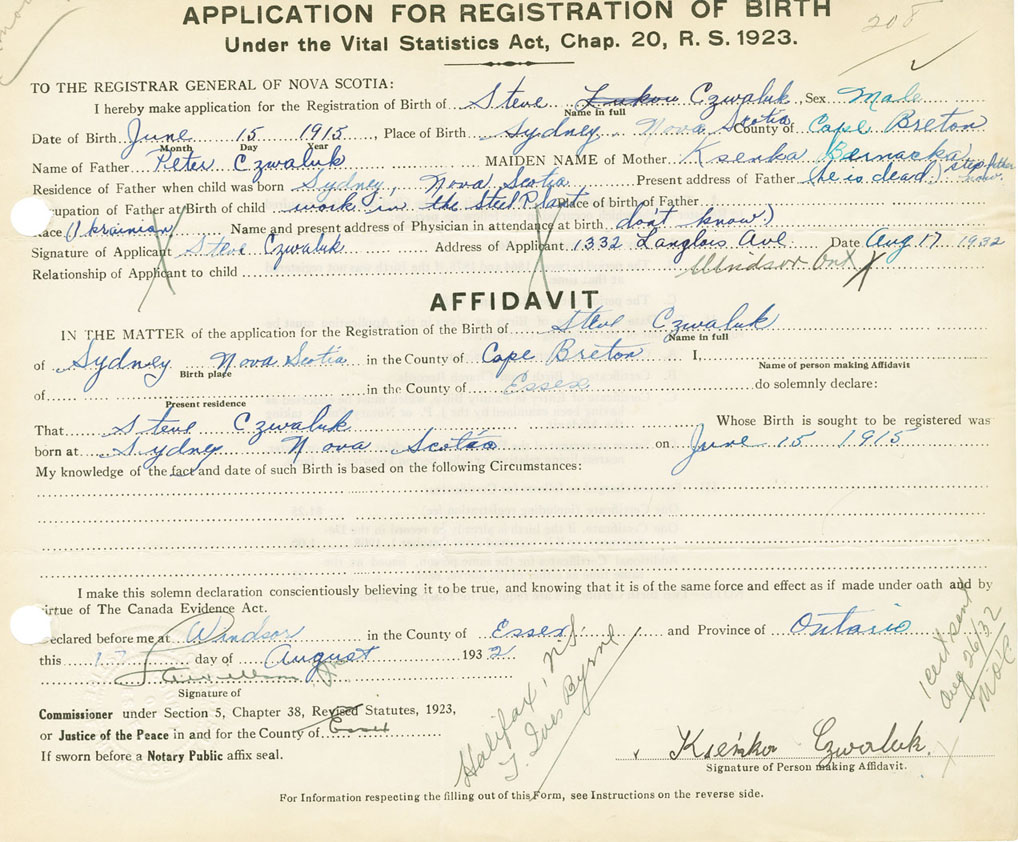 APPLICATION FOR REGISTRATION OF BIRTH
208
Under the Vital Statistics Act, Chap. 20, R. S. 1923.
TO THE REGISTRAR GENERAL OF NOVA SCOTIA:
I hereby make application for the Registration of Birth of Steve Czwaluk, Sex Male
Name in full
Date of Birth June 15 1915, Place of Birth Sydney Nova Scotia County of Cape Breton
Month Day Year
Name of Father Peter Czwaluk MAIDEN NAME of Mother Ksenka Bernacka
Residence of Father when child was born Sydney, Nova Scotia Present address of Father (he is dead) step father now
Occupation of Father at Birth of child work in the Steel Plant Place of birth of Father
Race (Ukrainian) Name and present address of Physician in attendance at birth don't know)
Signature of Applicant Steve Czwaluk Address of Applicant 1332 Langlois Ave. Date Aug 17 1932
Relationship of Applicant to child Windsor Ont X
AFFIDAVIT
IN THE MATTER of the application for the Registration of the Birth of Steve Czwaluk
Name in full
of Sydney Nova Scotia in the County of Cape Breton I,
Birth place Name of person making Affidavit
of in the County of Essex do solemnly declare:
Present residence
That Steve Czwaluk Whose Birth is sought to be registered was
born at Sydney Nova Scotia on June 15 1915
My knowledge of the fact and date of such Birth is based on the following Circumstances:
I make this solemn declaration conscientiously believing it to be true, and knowing that it is of the same force and effect as if made under oath and by
virtue of The Canada Evidence Act.
Declared before me at Windsor in the County of Essex and Province of Ontario
this 17 day of August 1932
Signature of
Commissioner under Section 5, Chapter 38, Revised Statutes, 1923,
or Justice of the Peace in and for the County of Essex
If sworn before a Notary Public affix seal.
Halifax, N.S.
T. Ives Byrne
1 cert sent
Aug 26/32
Ksenka Czwaluk.
Signature of Person making Affidavit.
For Information respecting the filling out of this Form, see Instructions on the reverse side.